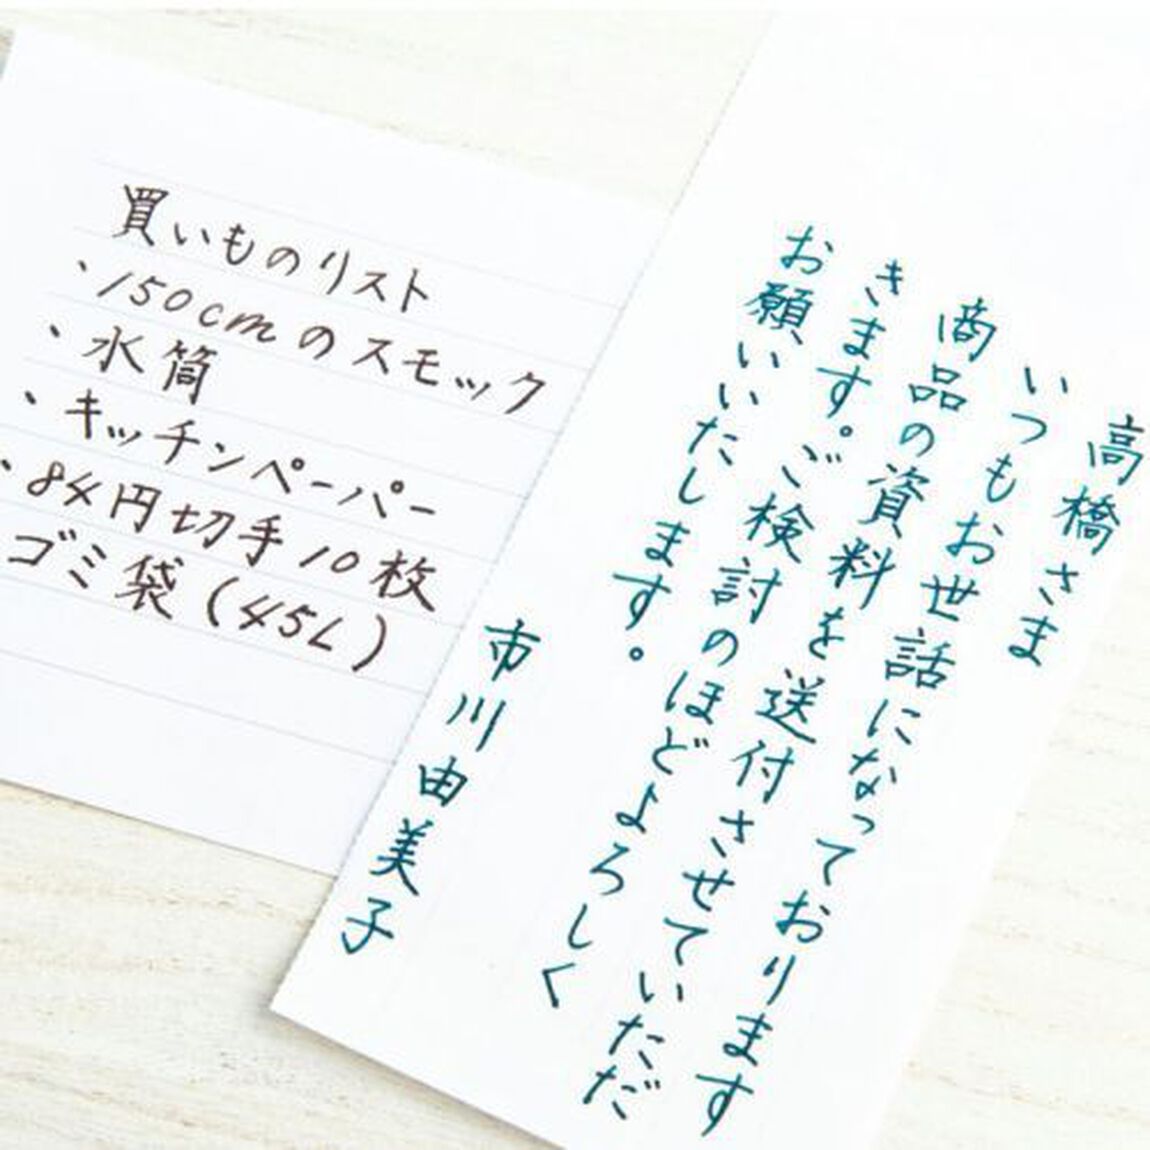 買いものリスト
・150cmのスモック
・水筒
・キッチンペーパー
・84円切手10枚
ゴミ袋(45L)
高橋さま
いつもお世話になっております
商品の資料を送付させていただ
きます。ご検討のほどよろしく
お願いいたします。
市川由美子